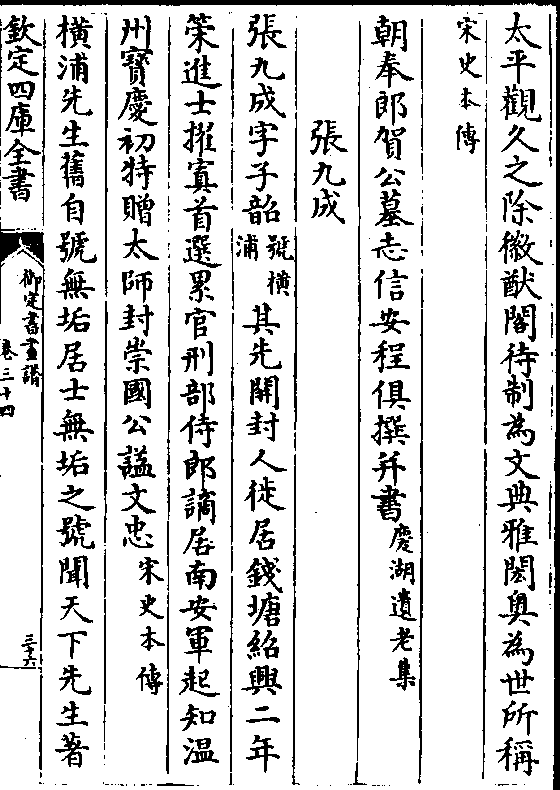 太平觀久之除徽猷閣待制為文典雅閎奧為世所稱
宋史本傳
朝奉郎賀公墓志信安程俱撰并書慶湖遺老集
張九成
張九成字子韶號橫浦其先開封人徙居錢塘紹興二年
策進士擢寘首選累官刑部侍郎謫居南安軍起知溫
州寶慶初特贈太師封崇國公諡文忠宋史本傳
橫浦先生舊自號無垢居士無垢之號聞天下先生著
欽定四庫全書
御定書畫譜
卷三十四
三十六